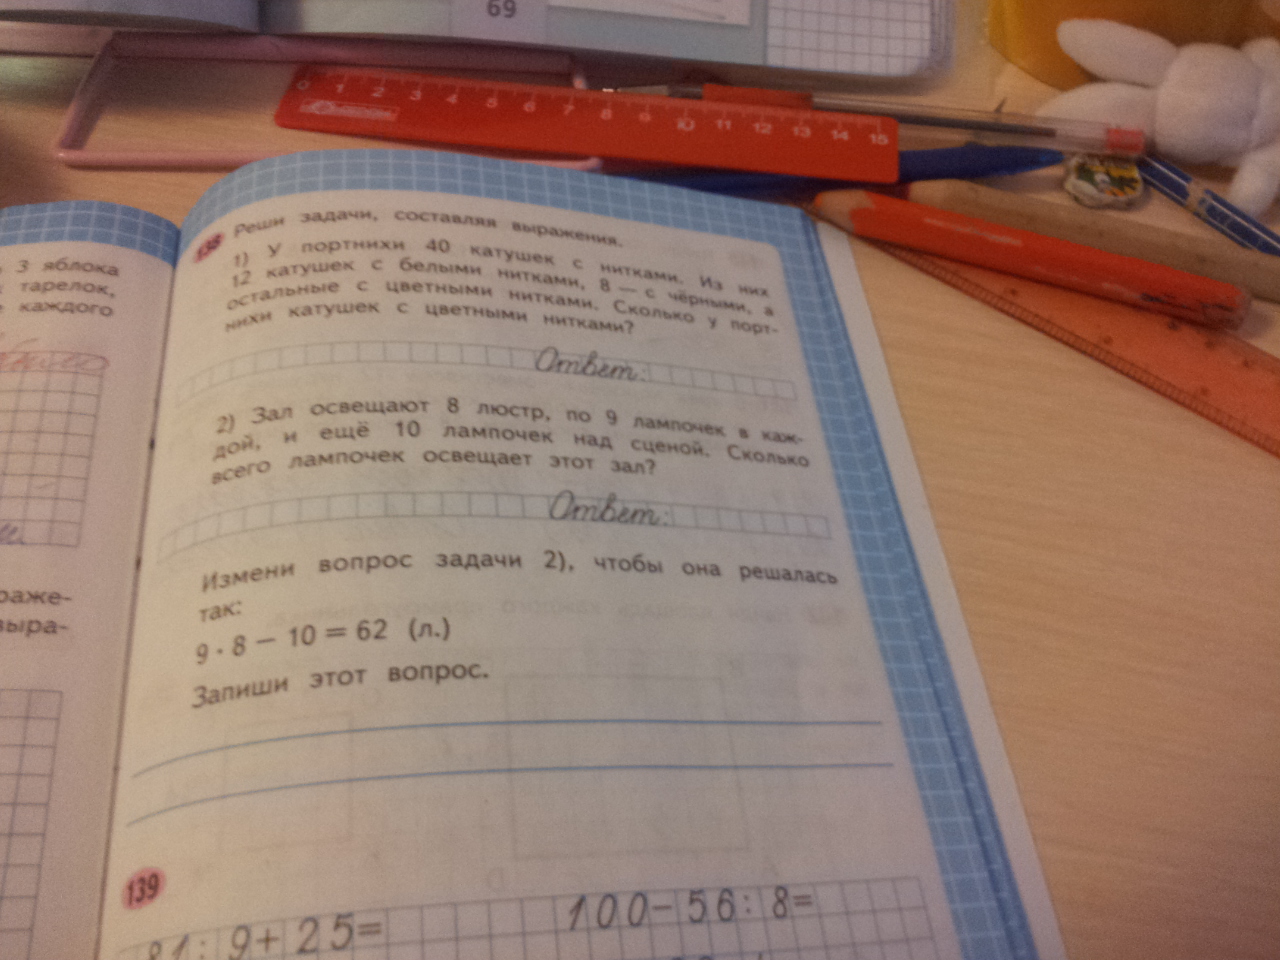 69
0 1 2 3 4 5 6 7 8 9 10 11 12 13 14 15
3 яблока
тарелок,
каждого
раже-
выра-
138 Реши задачи, составляя выражения.
1) У портнихи 40 катушек с нитками. Из них
12 катушек с белыми нитками, 8 — с чёрными, а
остальные с цветными нитками. Сколько у порт-
нихи катушек с цветными нитками?
Ответ:
2) Зал освещают 8 люстр, по 9 лампочек в каж-
дой, и ещё 10 лампочек над сценой. Сколько
всего лампочек освещает этот зал?
Ответ:
Измени вопрос задачи 2), чтобы она решалась
так:
9 · 8 − 10 = 62 (л.)
Запиши этот вопрос.
139
81 : 9 + 25 =
100 − 56 : 8 =